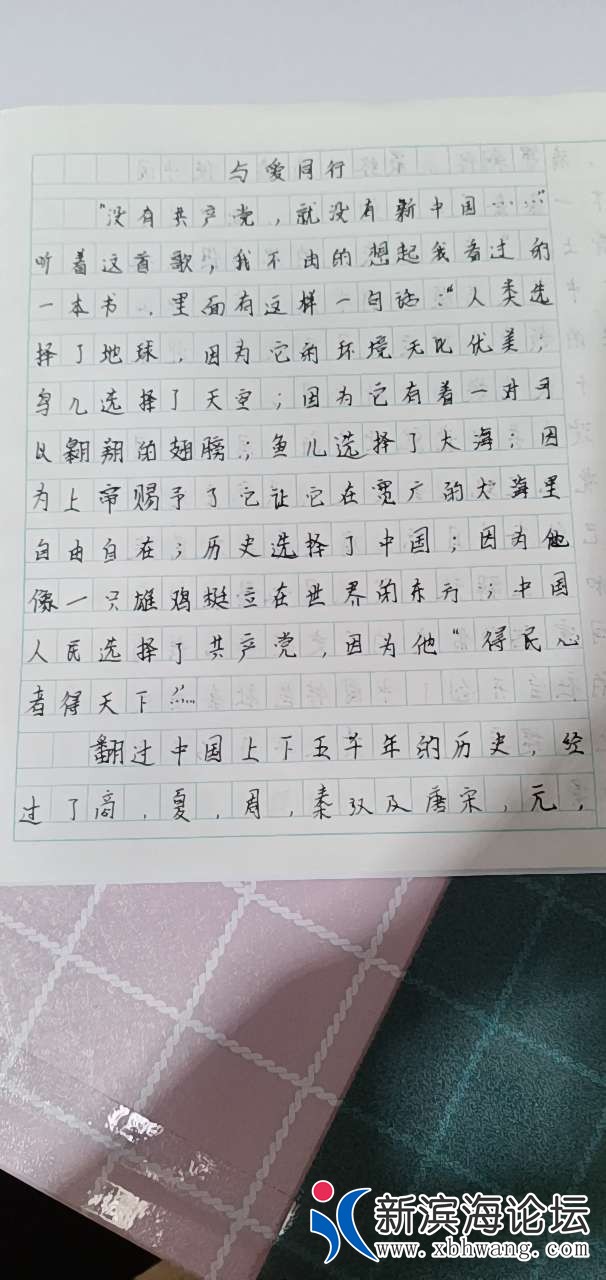 与爱同行
“没有共产党，就没有新中国……”
听着这首歌，我不由的想起我看过的
一本书，里面有这样一句话：“人类选
择了地球，因为它的环境无比优美；
鸟儿选择了天空；因为它有着一对可
以翱翔的翅膀；鱼儿选择了大海；因
为上帝赐予了它让它在宽广的大海里
自由自在；历史选择了中国；因为他
像一只雄鸡挺立在世界的东方；中国
人民选择了共产党，因为他“得民心
者得天下”……
翻过中国上下五千年的历史，经
过了商，夏，周，秦汉及唐宋，元，
新滨海论坛
www.xbhwang.com